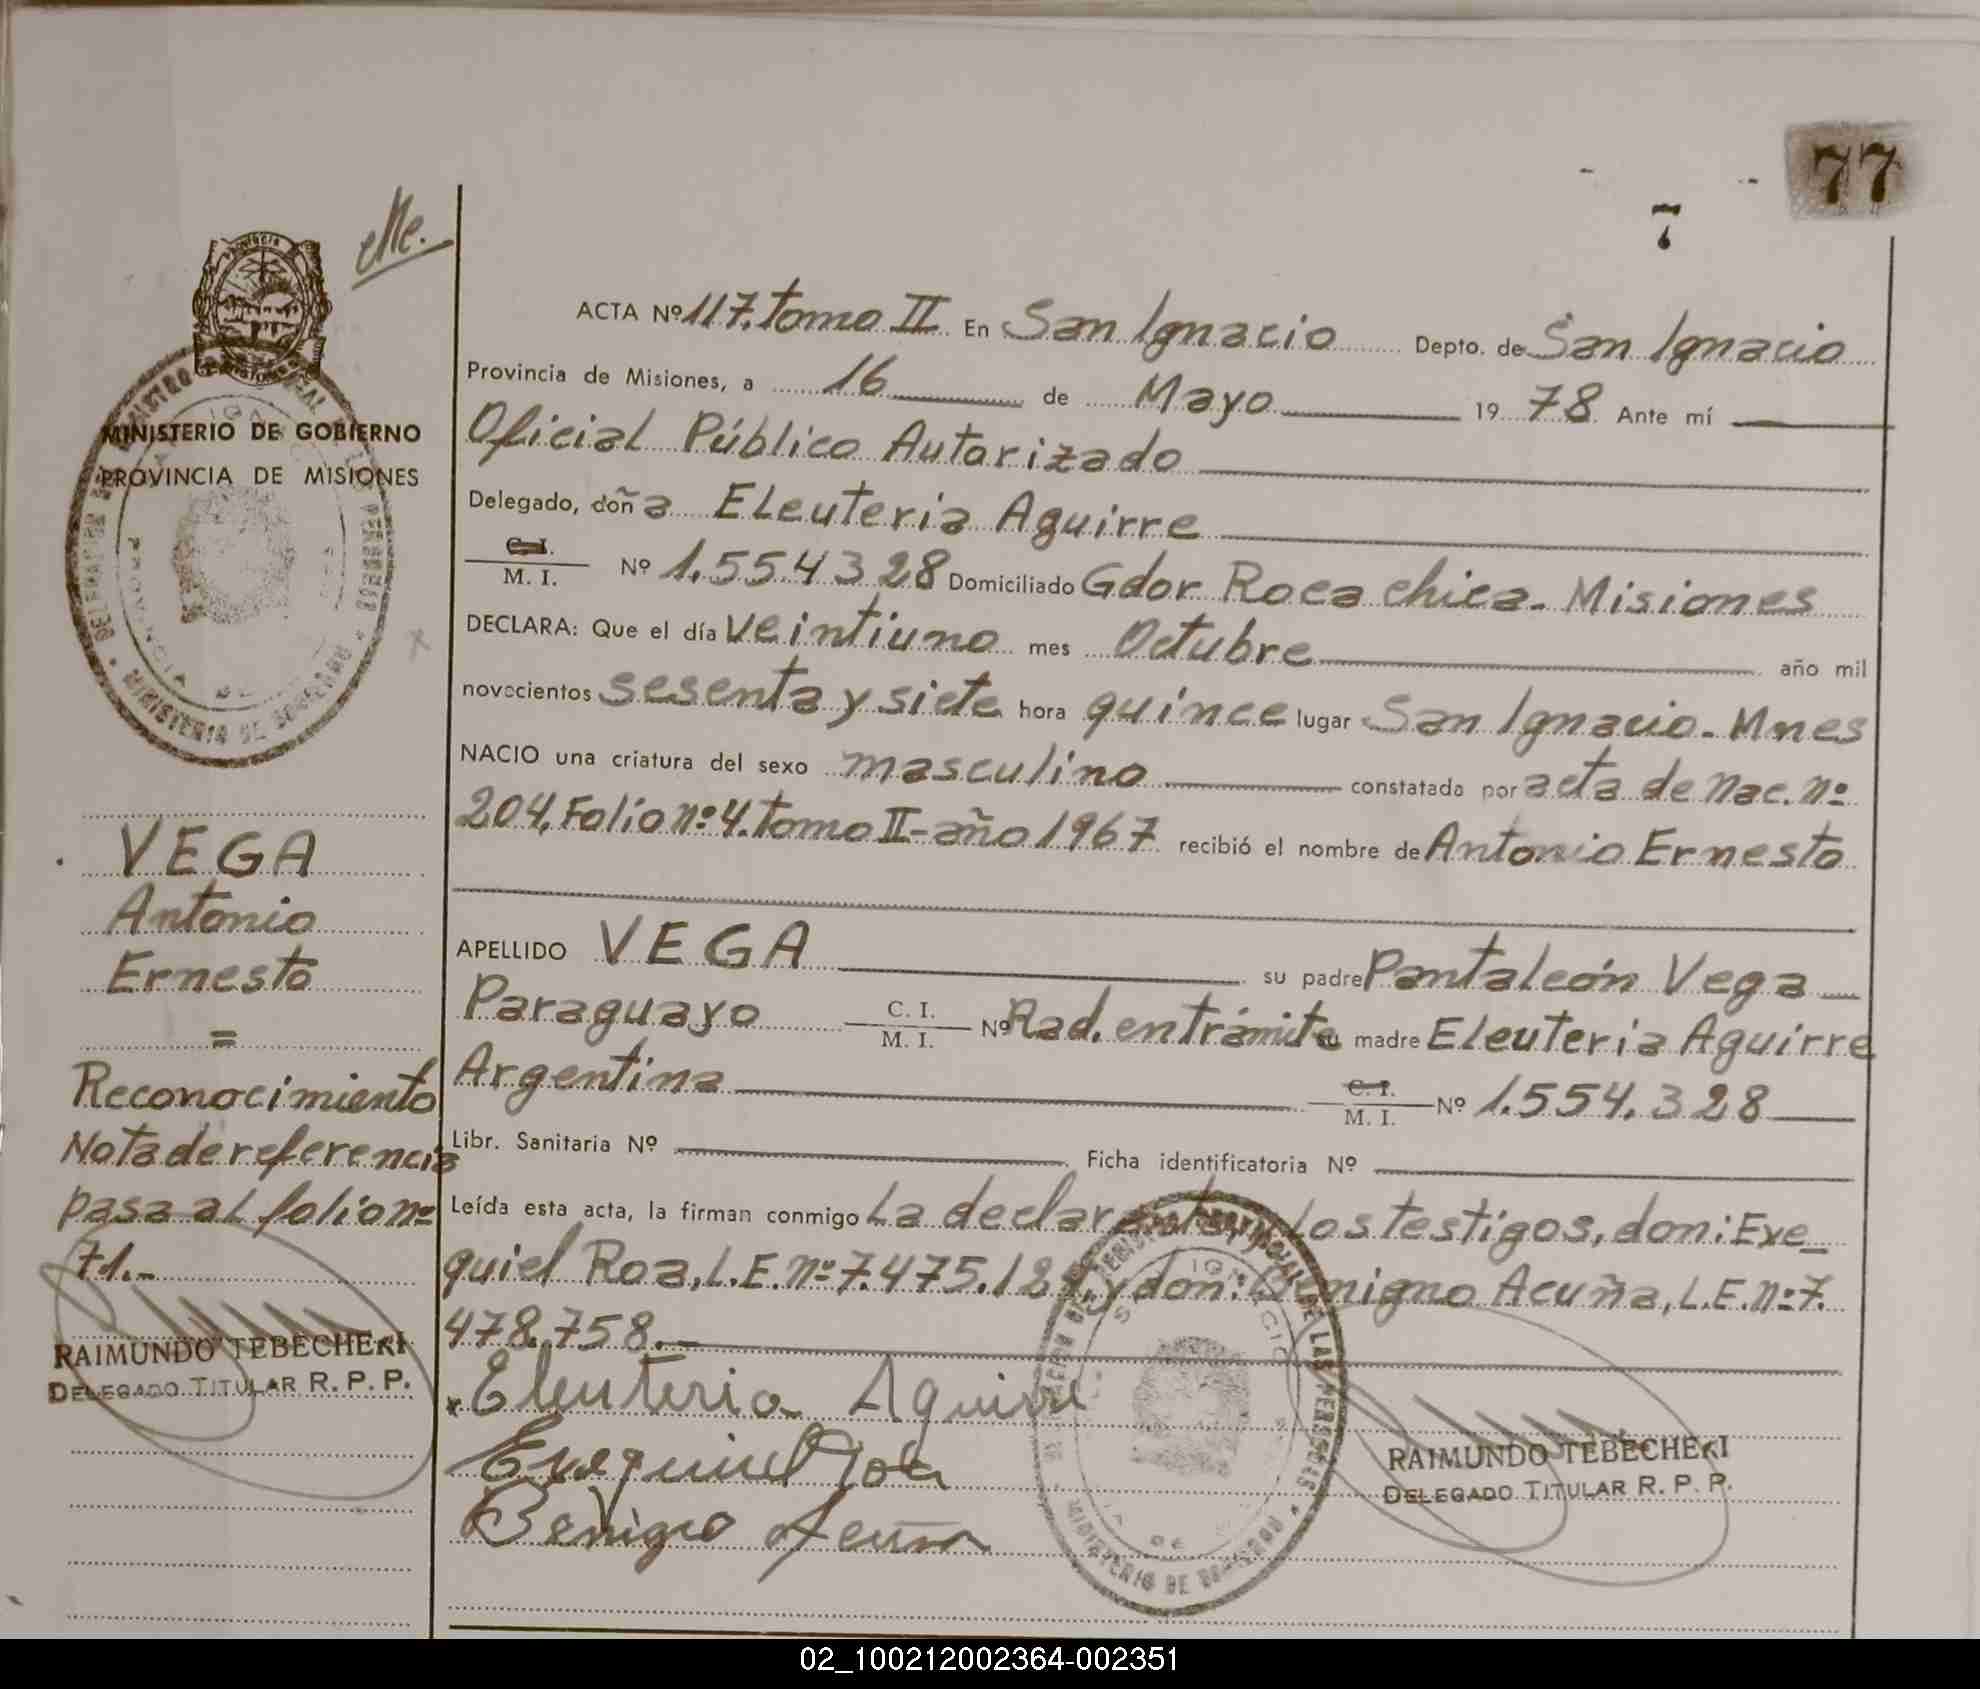 77
7
ACTA Nº 117. Tomo II En San Ignacio Depto. de San Ignacio
Provincia de Misiones, a 16 de Mayo 1978 Ante mí
Oficial Público Autorizado
Delegado, doña Eleuteria Aguirre
C. I.
M. I. Nº 1.554328 Domiciliado Gdor Roca chica. Misiones
DECLARA: Que el día veintiuno mes Octubre año mil
novecientos sesenta y siete hora quince lugar San Ignacio. Mnes
NACIO una criatura del sexo masculino constatada por acta de Nac. nº
204. Folio nº 4. Tomo II-año 1967 recibió el nombre de Antonio Ernesto
APELLIDO VEGA su padre Pantaleón Vega
Paraguayo C. I. M. I. Nº Rad. en trámite su madre Eleuteria Aguirre
Argentina C. I. M. I. Nº 1.554.328
Libr. Sanitaria Nº Ficha identificatoria Nº
Leída esta acta, la firman conmigo La declarante y los testigos, don: Exe-
quiel Roa, L.E. nº 7.475.181 y don: Benigno Acuña, L.E. nº 7.
478.758.-
Eleuteria Aguirre
Exequiel Roa
Benigno Acuña
RAIMUNDO TEBECHERI
DELEGADO TITULAR R. P. P.
MINISTERIO DE GOBIERNO
PROVINCIA DE MISIONES
VEGA
Antonio
Ernesto
=
Reconocimiento
Nota de referencia
pasa al folio nº
71.-
RAIMUNDO TEBECHERI
DELEGADO TITULAR R. P. P.
02_100212002364-002351